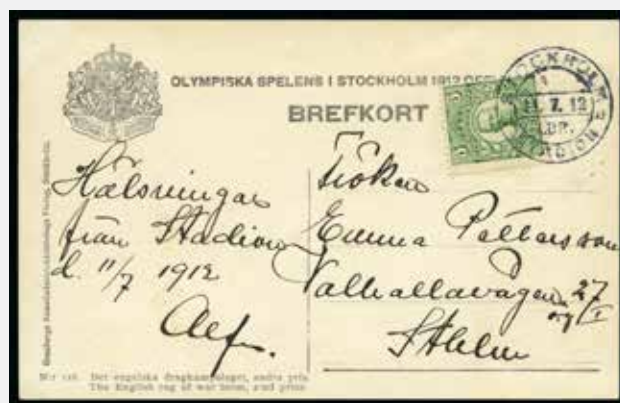 OLYMPISKA SPELENS I STOCKHOLM 1912
BREFKORT
STOCKHOLM 2
11.7.12
LBR.
STADION
5
Hälsningar
från Stadion
d. 11/7 1912
Alf.
Fröken
Emma Pettersson
Valhallavägen 27
I
Sthlm
N:r 126. Det engelska dragkamplaget, andra pris.
The English tug of war team, 2:nd prize